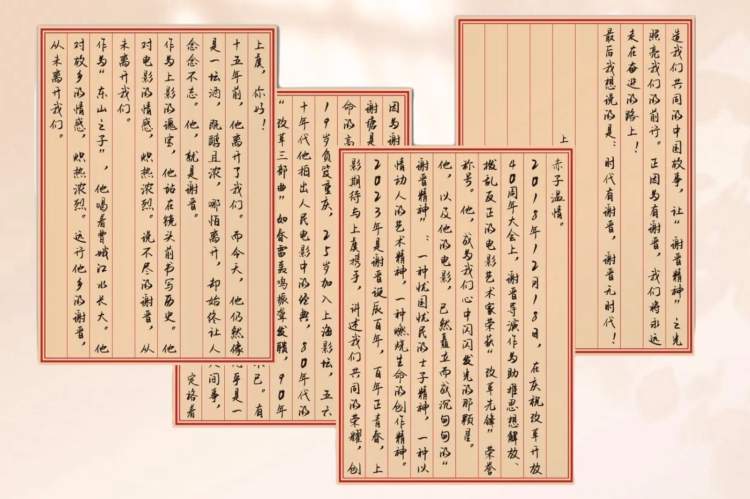 上虞，你好！
十五年前，他离开了我们。而今天，他仍然像
是一坛酒，既醇且浓，哪怕离开，却始终让人
念念不忘。他，就是谢晋。
作为上影的瑰宝，他站在镜头前书写历史。他
对电影的情感，炽热浓烈。说不尽的谢晋，从
未离开我们。
作为“东山之子”，他喝着曹娥江水长大。他
对故乡的情感，炽热浓烈。远行他乡的谢晋，
从未离开我们。
因为谢
谢塘是
命的高
19岁负笈重庆，25岁加入上海影坛，五六
十年代他拍出人民电影中的经典，80年代的
“改革三部曲”如春雷轰鸣振聋发聩，90年
已。有
是一
间事，
定格着
赤子温情。
2018年12月18日，在庆祝改革开放
40周年大会上，谢晋导演作为助推思想解放、
拨乱反正的电影艺术家荣获“改革先锋”荣誉
称号。他，成为我们心中闪闪发光的那颗星。
他，以及他的电影，已然矗立而成沉甸甸的“
谢晋精神”：一种忧国忧民的士子精神，一种以
情动人的艺术精神，一种燃烧生命的创作精神。
2023年是谢晋诞辰百年，百年正青春，上
影期待与上虞携手，讲述我们共同的荣耀，创
造我们共同的中国故事，让“谢晋精神”之光
照亮我们的前行。正因为有谢晋，我们将永远
走在奋进的路上！
最后我想说的是：时代有谢晋，谢晋元时代！
上